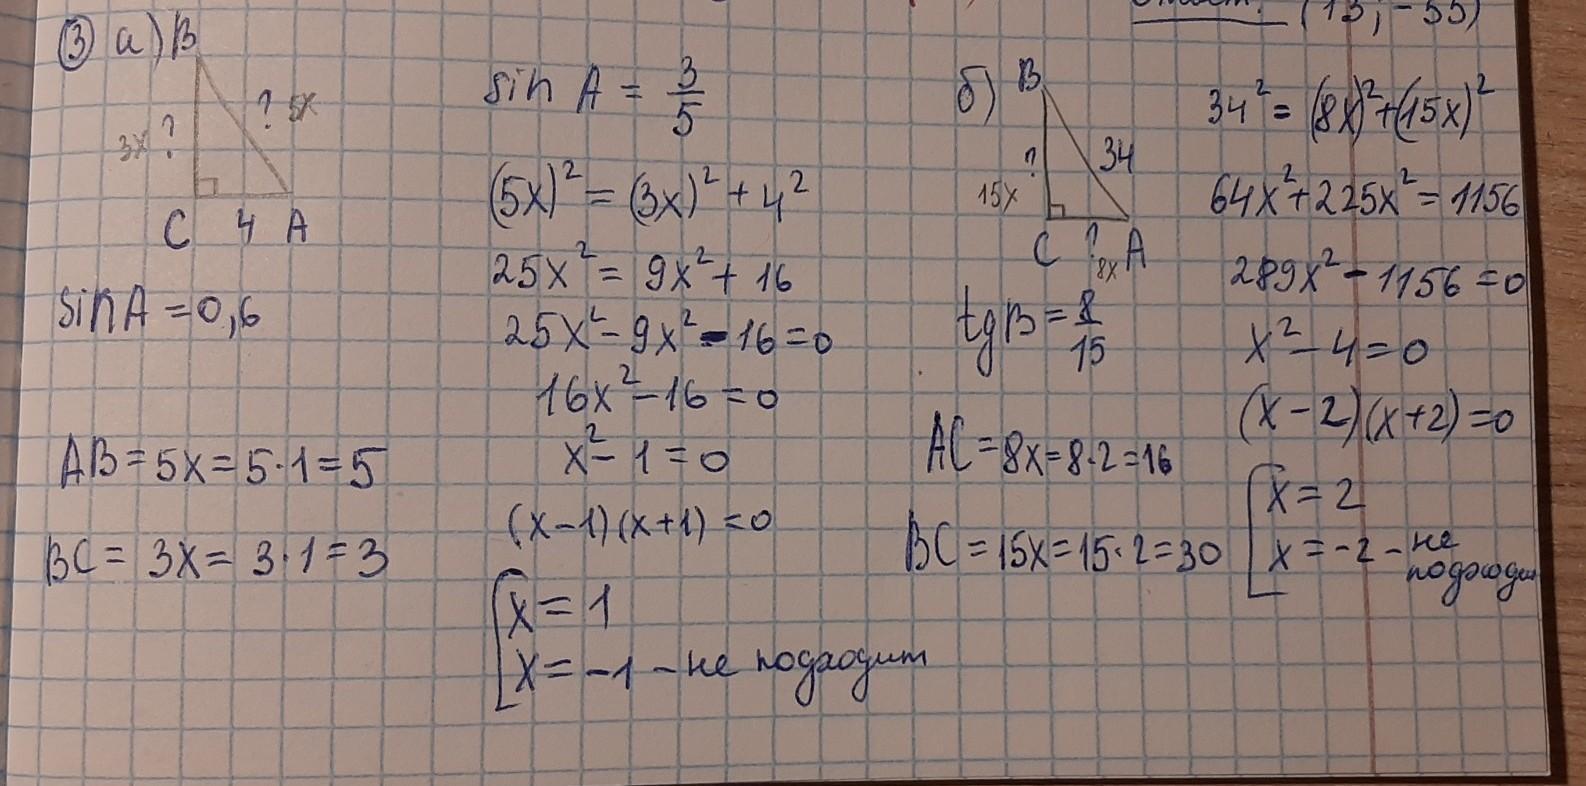 (13; -55)
③ а) B
? 5x
3x ?
C 4 A
sin A = 0,6
AB = 5x = 5·1 = 5
BC = 3x = 3·1 = 3
sin A = 3/5
(5x)² = (3x)² + 4²
25x² = 9x² + 16
25x² - 9x² - 16 = 0
16x² - 16 = 0
x² - 1 = 0
(x-1)(x+1) = 0
[ x = 1
x = -1 - не подходит
б) B
? 34
15x
C ? 8x A
tg B = 8/15
AC = 8x = 8·2 = 16
BC = 15x = 15·2 = 30
34² = (8x)² + (15x)²
64x² + 225x² = 1156
289x² - 1156 = 0
x² - 4 = 0
(x-2)(x+2) = 0
[ x = 2
x = -2 - не